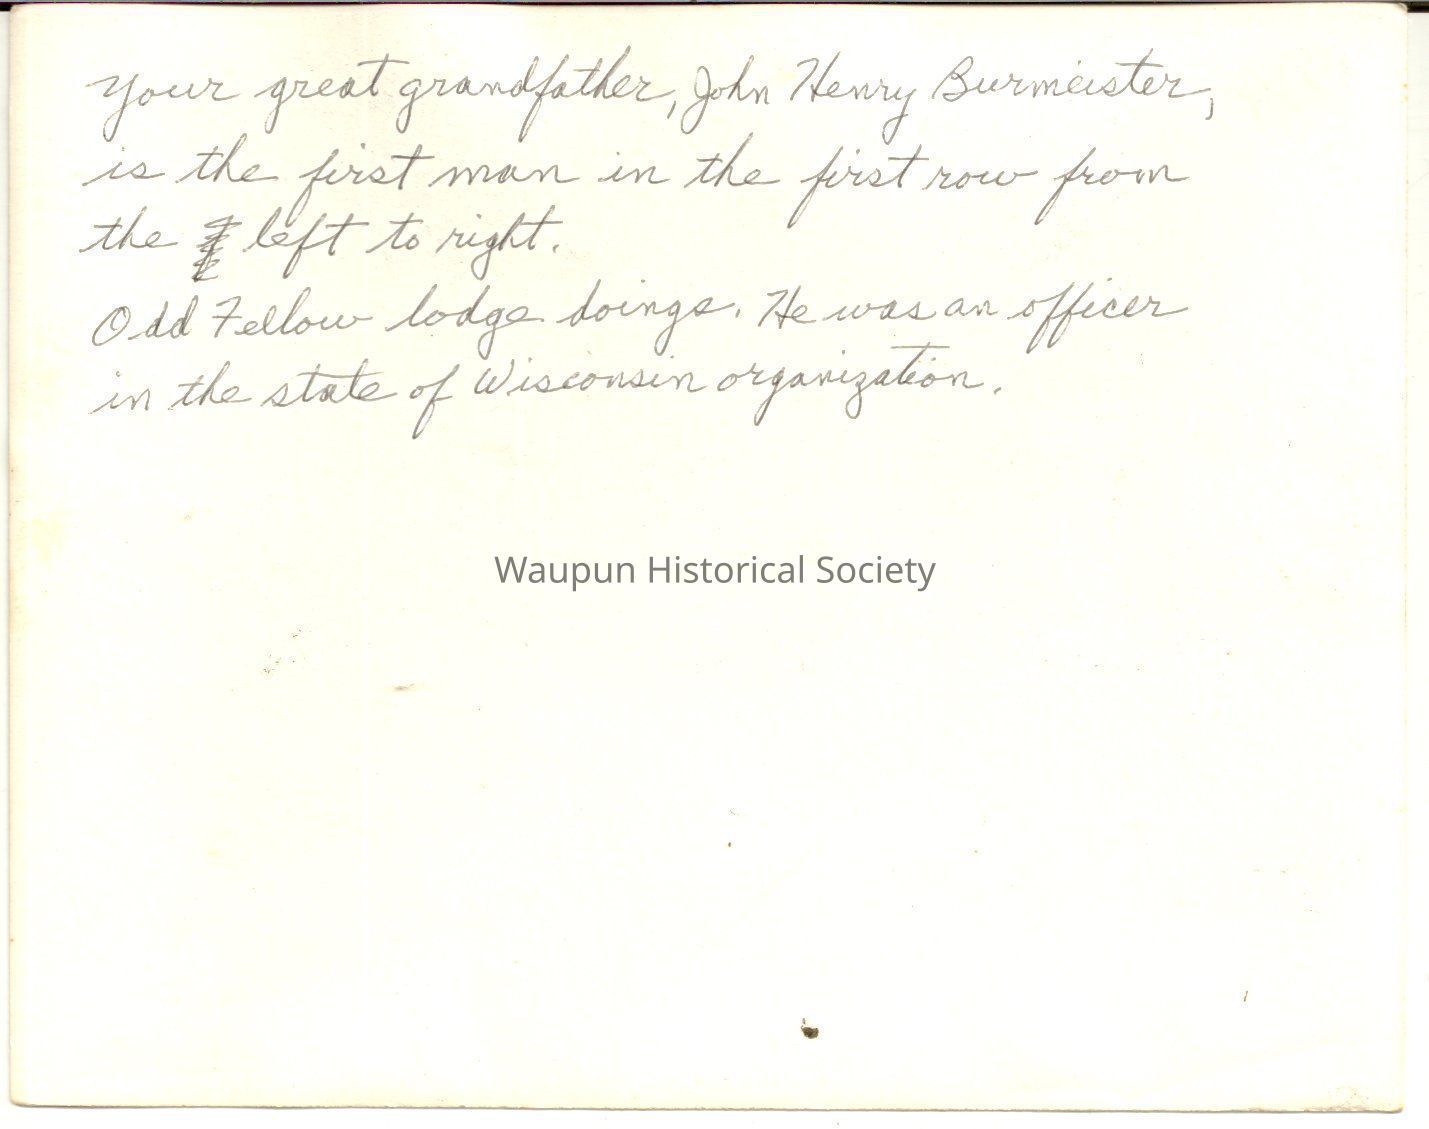 Your great grandfather, John Henry Burmeister,
is the first man in the first row from
the left to right.
Odd Fellow lodge doings. He was an officer
in the state of Wisconsin organization.
Waupun Historical Society